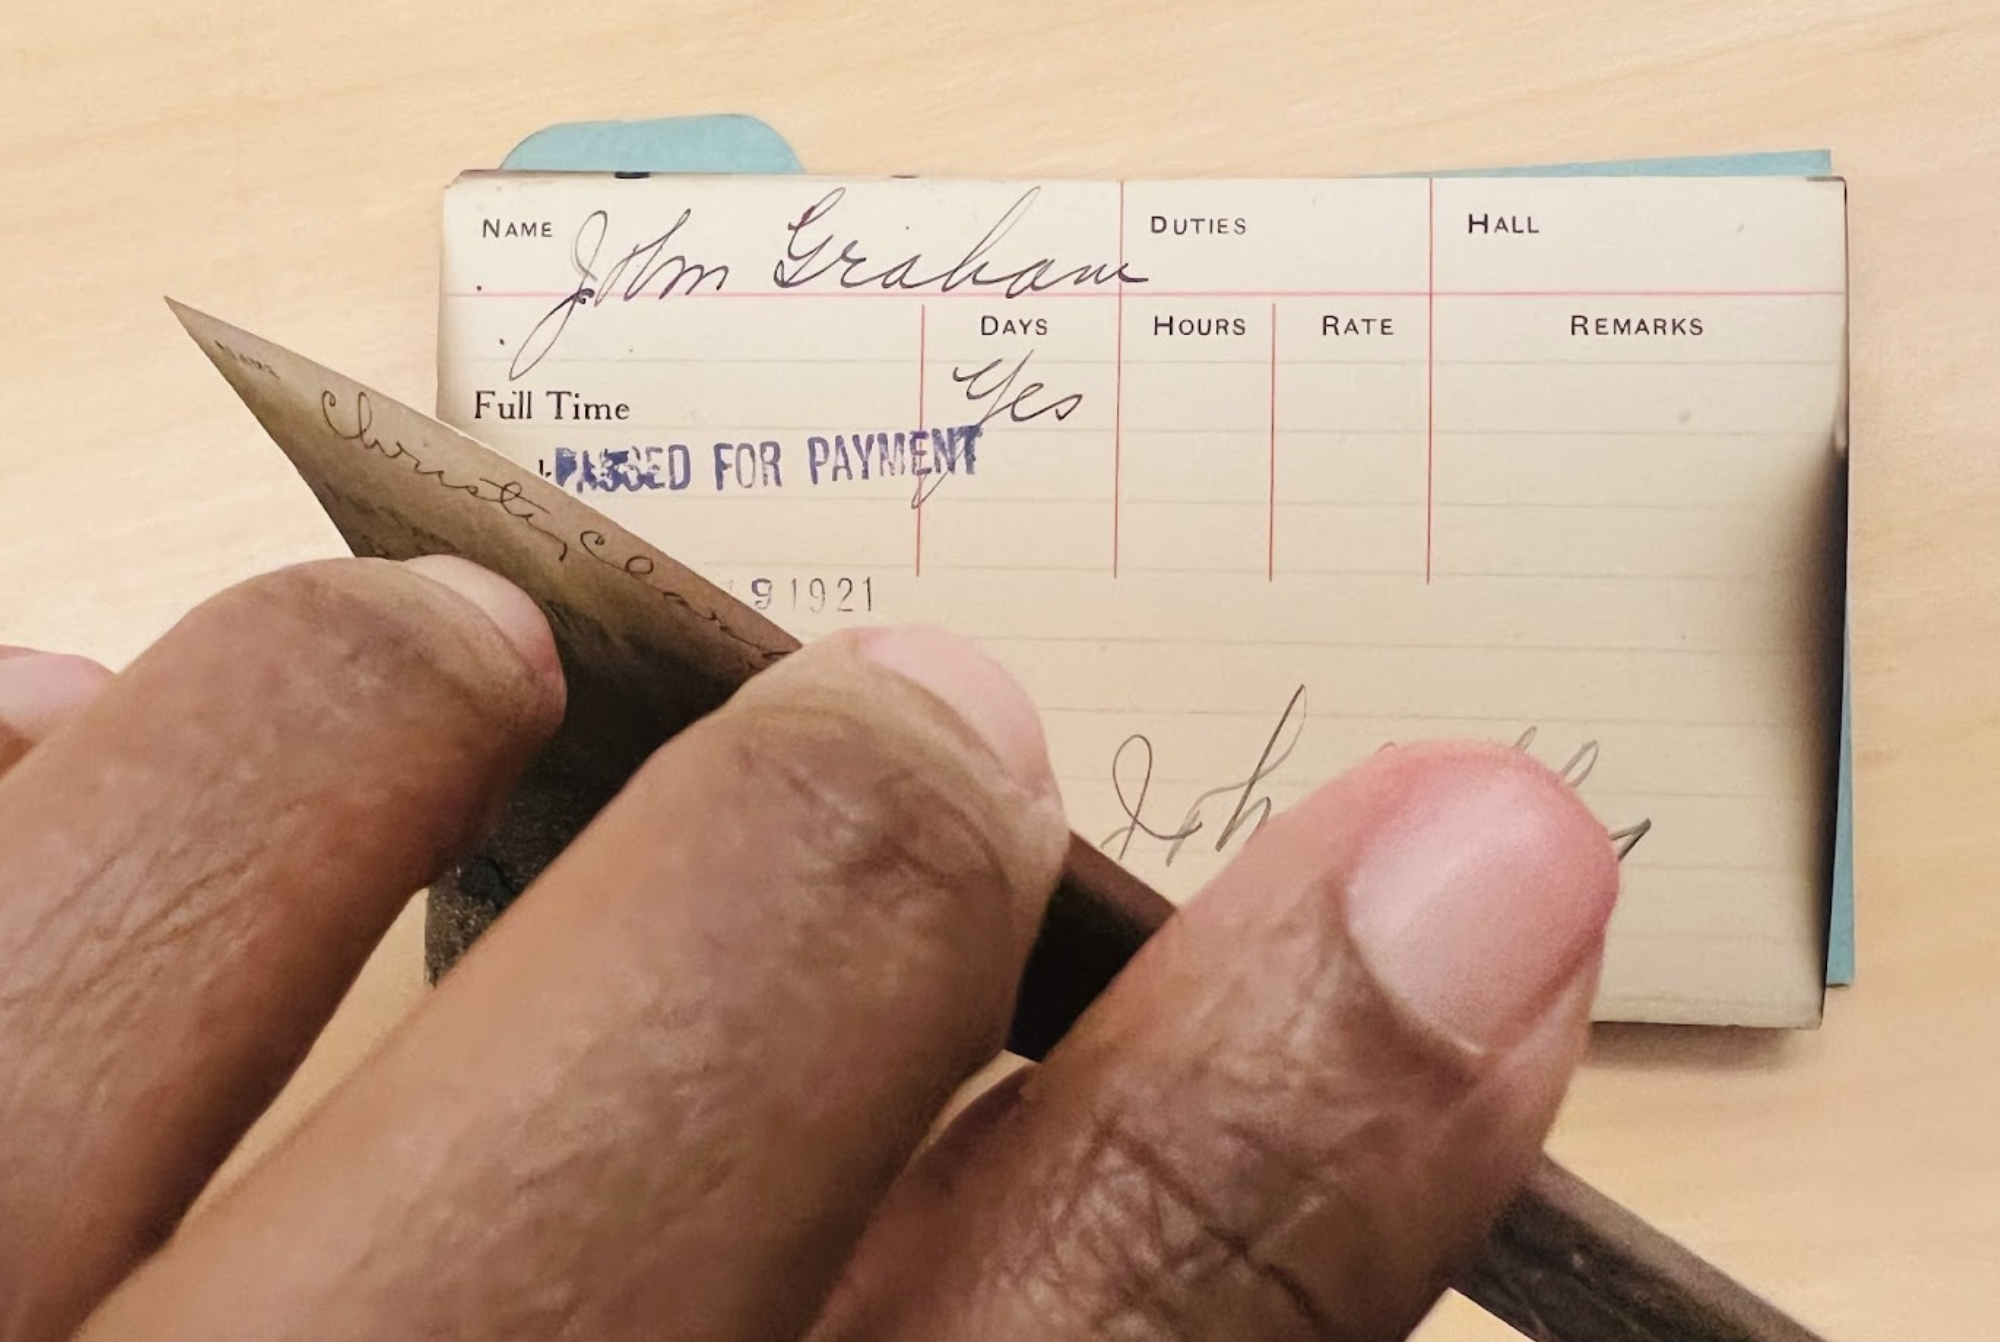 NAME John Graham DUTIES HALL
DAYS HOURS RATE REMARKS
Full Time Yes
PASSED FOR PAYMENT
9 1921
NAME
Christy